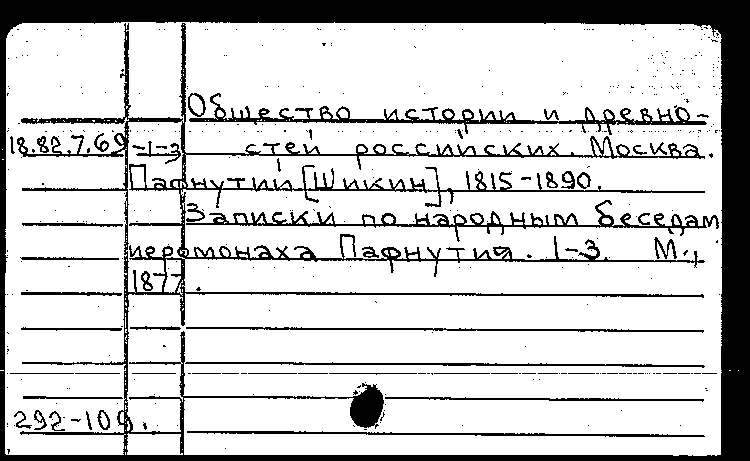 Общество истории и древно-
18.82.7.69 -1-3 стей российских. Москва.
Пафнутий [Шикин], 1815-1890.
Записки по народным беседам
иеромонаха Пафнутия. 1-3. М.,
1877.
292-109.